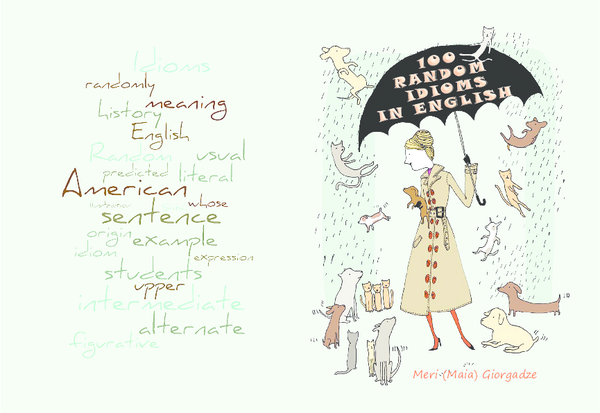 Idioms
randomly
history meaning
English
Random usual
predicted literal
American whose
sentence
origin example
idiom expression
students
upper
intermediate
alternate
figurative
100
RANDOM
IDIOMS
IN ENGLISH
Meri (Maia) Giorgadze